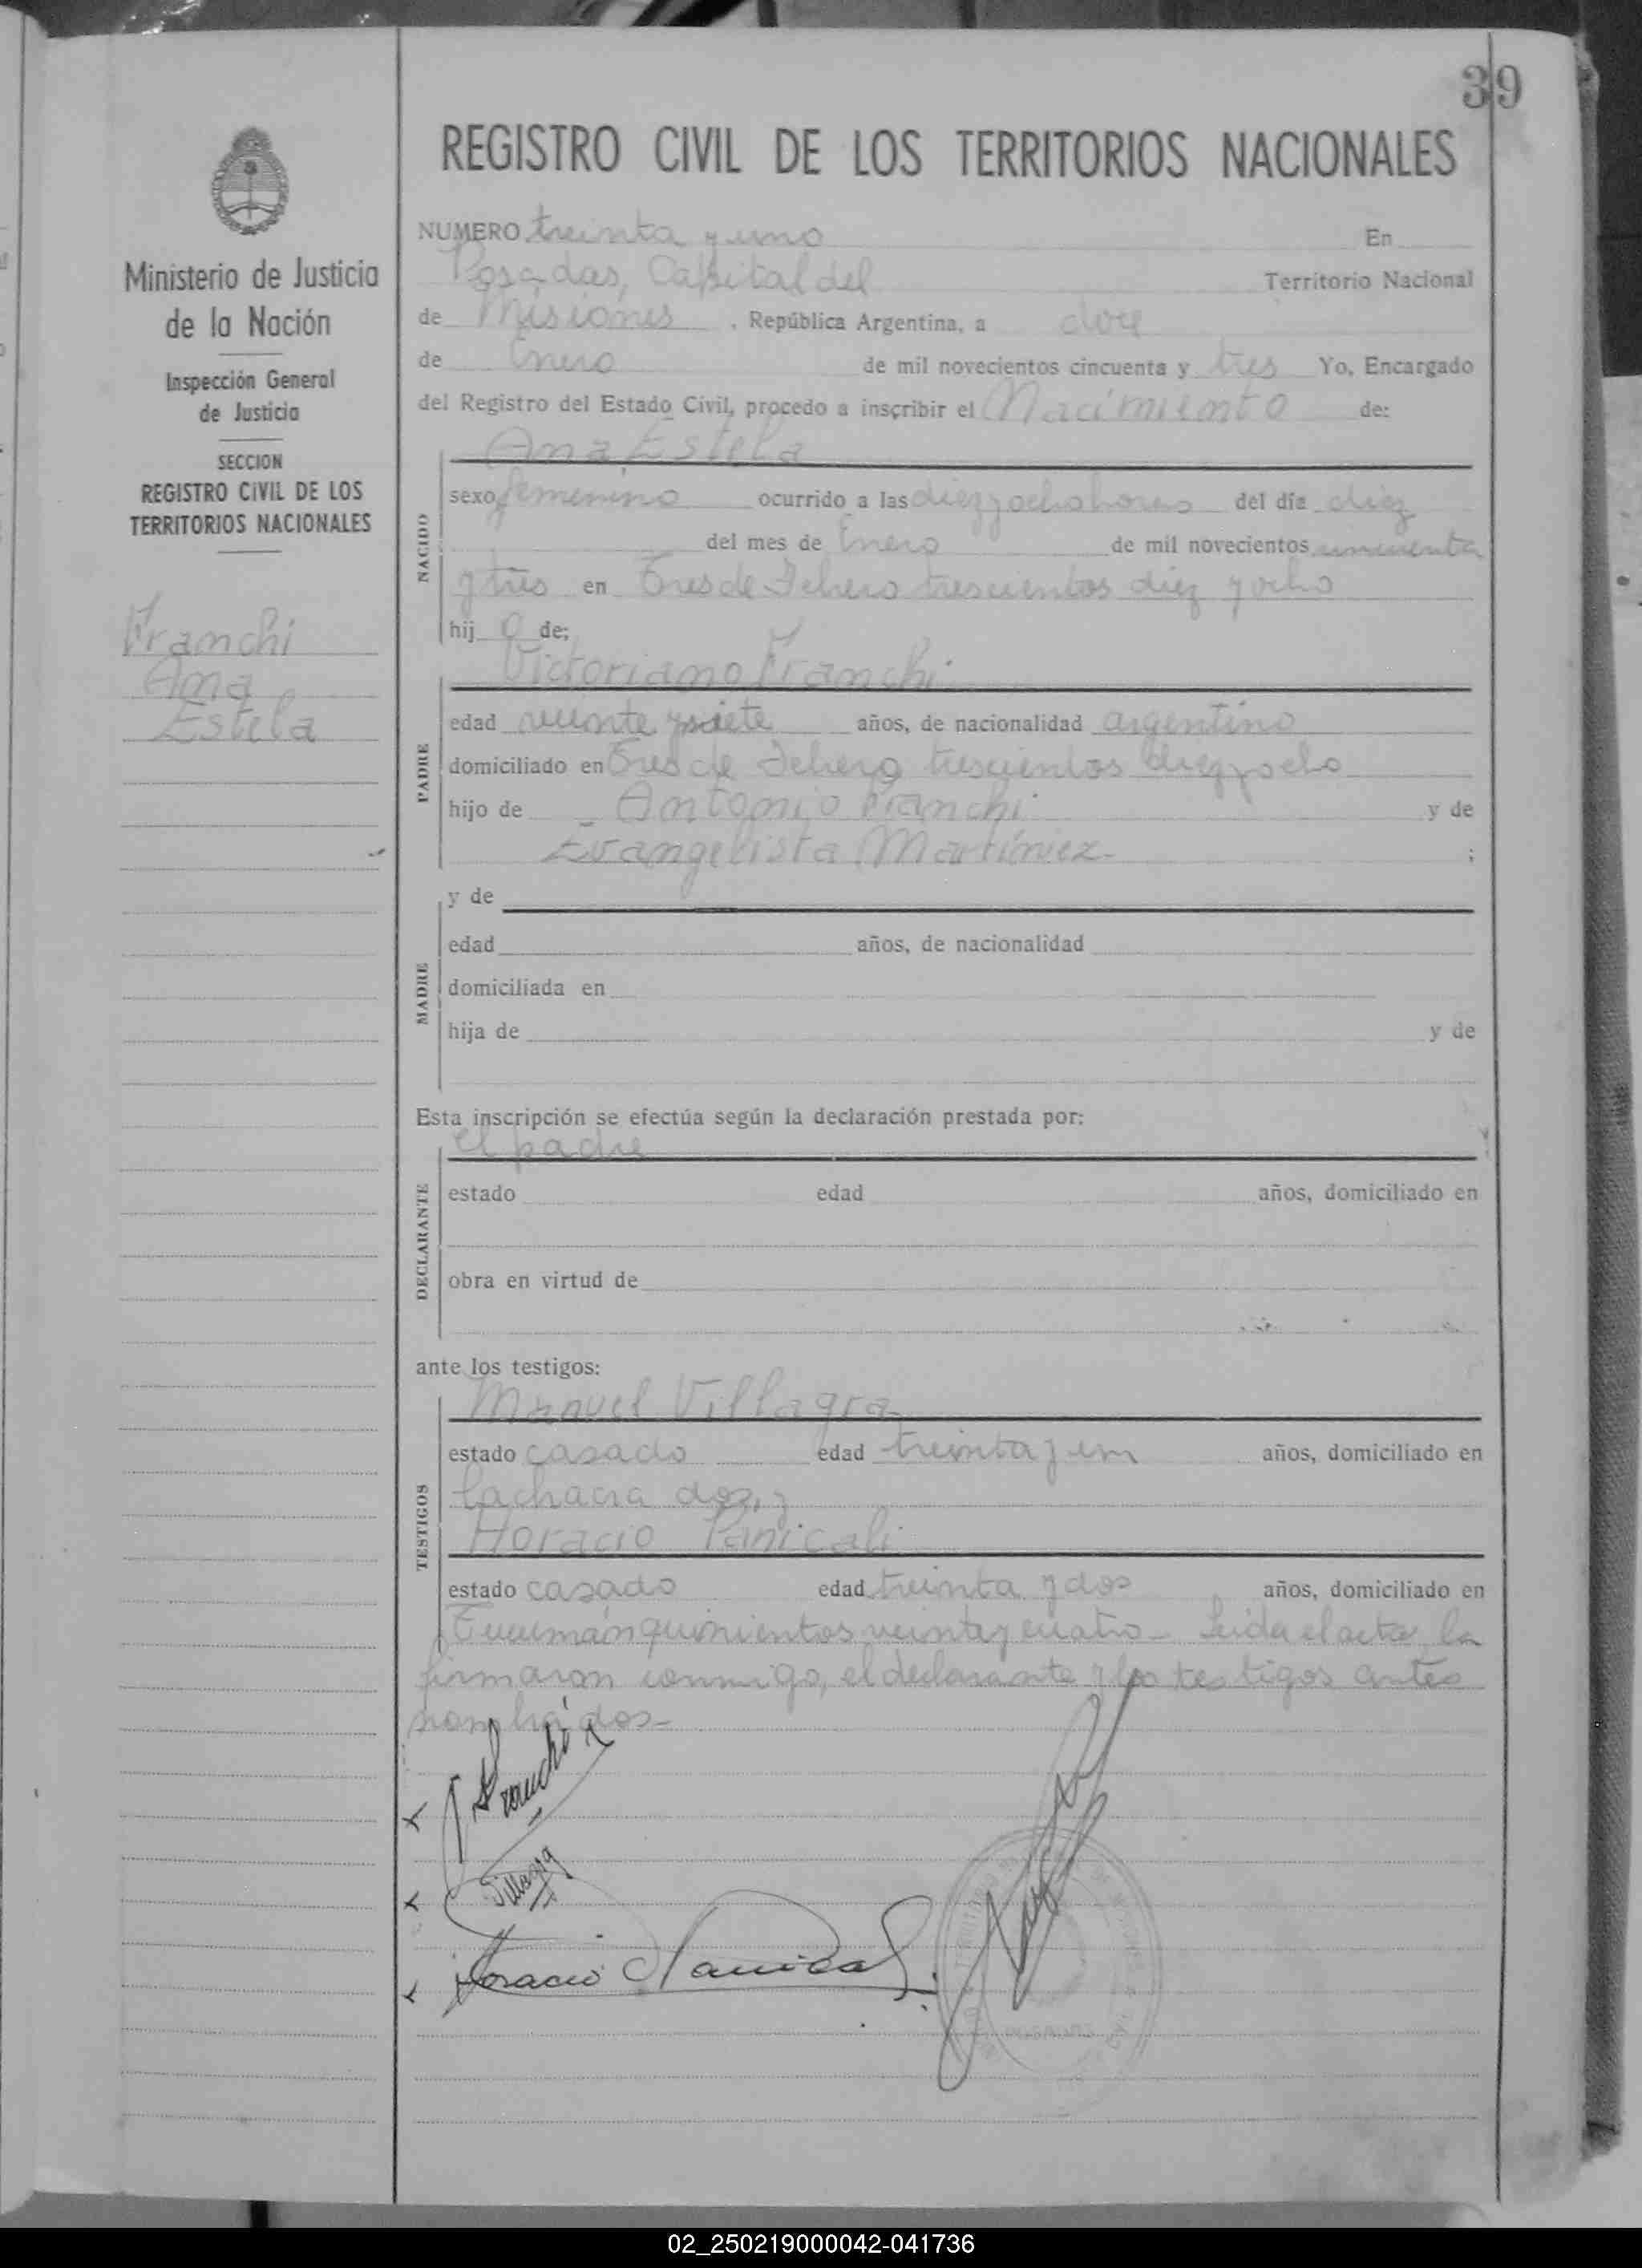 39
REGISTRO CIVIL DE LOS TERRITORIOS NACIONALES
Ministerio de Justicia
de la Nación
Inspección General
de Justicia
SECCION
REGISTRO CIVIL DE LOS
TERRITORIOS NACIONALES
Franchi
Ana
Estela
NUMERO treinta y uno En
Posadas, Capital del Territorio Nacional
de Misiones, República Argentina, a doce
de Enero de mil novecientos cincuenta y tres Yo, Encargado
del Registro del Estado Civil, procedo a inscribir el Nacimiento de:
Ana Estela
NACIDO
sexo femenino ocurrido a las diez y ocho horas del día diez
del mes de Enero de mil novecientos cincuenta
y tres en Tres de Febrero trescientos diez y ocho
hij a de:
Victoriano Franchi
PADRE
edad veinte y siete años, de nacionalidad argentino
domiciliado en Tres de Febrero trescientos diez y ocho
hijo de Antonio Franchi y de
Evangelista Martínez - ;
MADRE
y de
edad años, de nacionalidad
domiciliada en
hija de y de
Esta inscripción se efectúa según la declaración prestada por:
el padre
DECLARANTE
estado edad años, domiciliado en
obra en virtud de
ante los testigos:
Manuel Villagra
TESTIGOS
estado casado edad treinta y un años, domiciliado en
la chacra dos, y
Horacio Panicali
estado casado edad treinta y dos años, domiciliado en
Tucumán quinientos veinte y cuatro - Leida el acta la
firmaron conmigo, el declarante y los testigos antes
nombrados -
Franchi
Villagra
Horacio Panical
02_250219000042-041736